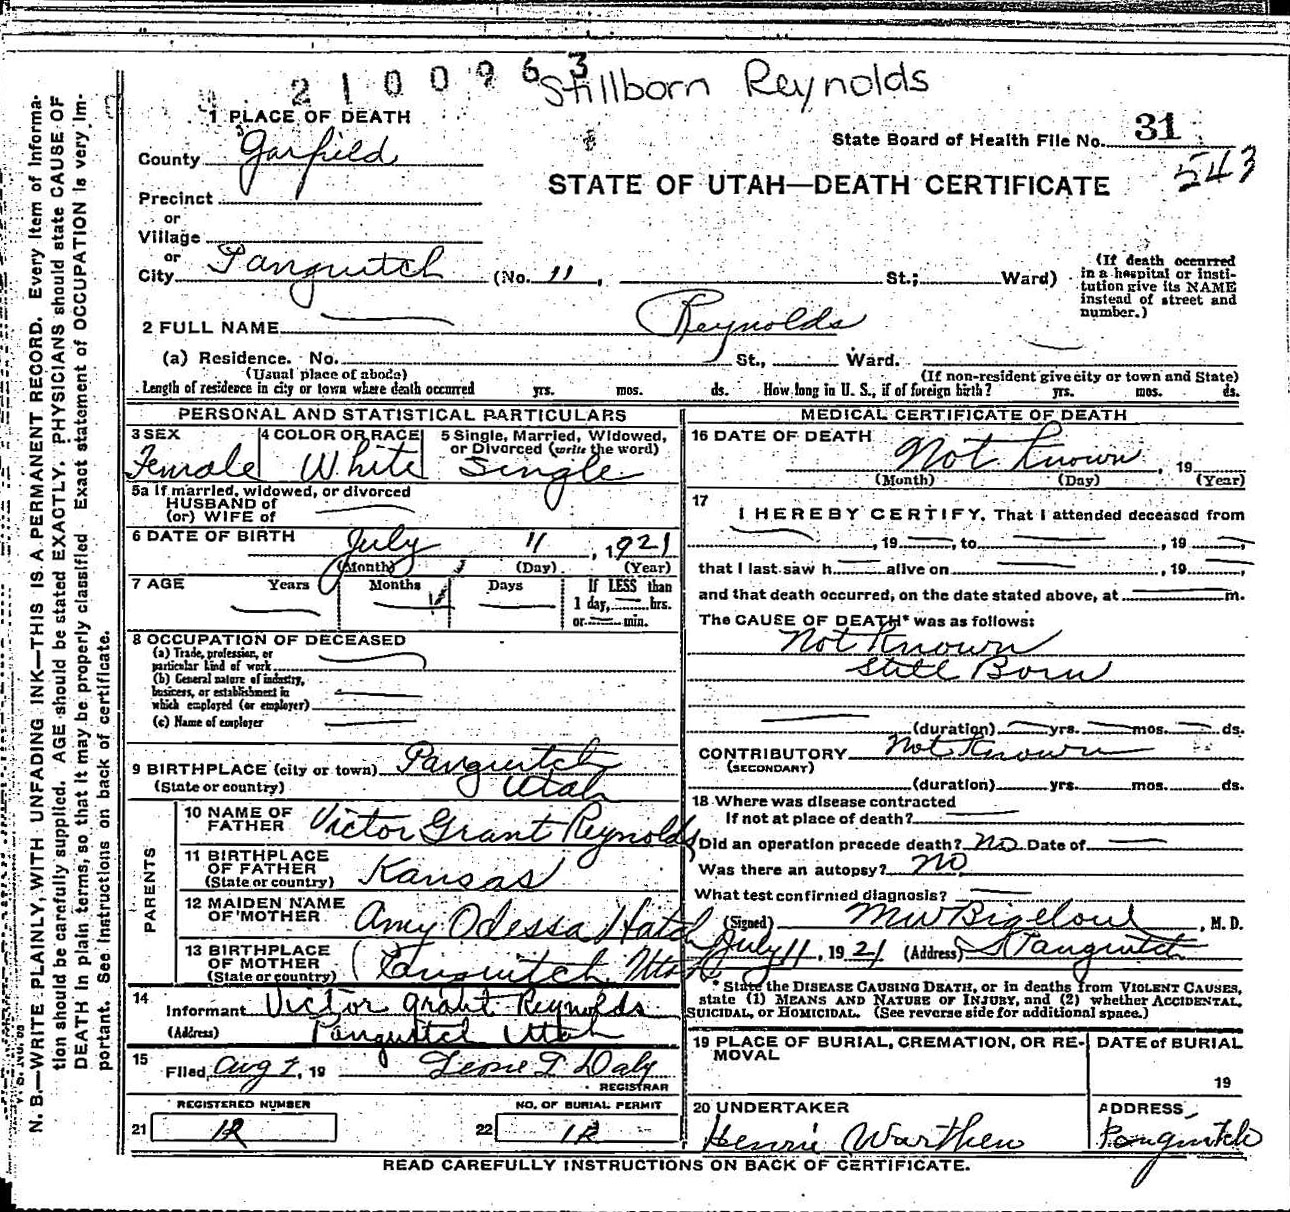 2 1 0 0 9 6 3
Stillborn Reynolds
1 PLACE OF DEATH
State Board of Health File No. 31
543
County Garfield
STATE OF UTAH—DEATH CERTIFICATE
Precinct
or
Village
or
City Panguitch (No. 11, St.; Ward)
(If death occurred in a hospital or institution give its NAME instead of street and number.)
2 FULL NAME Reynolds
(a) Residence. No. St., Ward.
(Usual place of abode) (If non-resident give city or town and State)
Length of residence in city or town where death occurred yrs. mos. ds. How long in U. S., if of foreign birth? yrs. mos. ds.
PERSONAL AND STATISTICAL PARTICULARS
3 SEX Female
4 COLOR OR RACE White
5 Single, Married, Widowed, or Divorced (write the word) Single
5a If married, widowed, or divorced
HUSBAND of
(or) WIFE of
6 DATE OF BIRTH July 11, 1921
(Month) (Day) (Year)
7 AGE Years Months Days If LESS than
1 day, hrs.
or min.
8 OCCUPATION OF DECEASED
(a) Trade, profession, or
particular kind of work
(b) General nature of industry,
business, or establishment in
which employed (or employer)
(c) Name of employer
9 BIRTHPLACE (city or town) Panguitch
(State or country) Utah
PARENTS
10 NAME OF FATHER Victor Grant Reynolds
11 BIRTHPLACE OF FATHER (State or country) Kansas
12 MAIDEN NAME OF MOTHER Amy Odessa Hatch
13 BIRTHPLACE OF MOTHER (State or country) Panguitch Utah
14 Informant Victor Grant Reynolds
(Address) Panguitch Utah
15 Filed, Aug 1, 19 Daly
REGISTRAR
REGISTERED NUMBER
21 12
NO. OF BURIAL PERMIT
22 12
MEDICAL CERTIFICATE OF DEATH
16 DATE OF DEATH Not Known, 19
(Month) (Day) (Year)
17 I HEREBY CERTIFY, That I attended deceased from
, 19 , to , 19 ,
that I last saw h alive on , 19 ,
and that death occurred, on the date stated above, at m.
The CAUSE OF DEATH* was as follows:
Not Known
Still Born
(duration) yrs. mos. ds.
CONTRIBUTORY Not Known
(SECONDARY)
(duration) yrs. mos. ds.
18 Where was disease contracted
If not at place of death?
Did an operation precede death? No Date of
Was there an autopsy? No
What test confirmed diagnosis?
(Signed) M W Bigelow, M. D.
July 11, 1921 (Address) Panguitch
* State the DISEASE CAUSING DEATH, or in deaths from VIOLENT CAUSES,
state (1) MEANS AND NATURE OF INJURY, and (2) whether ACCIDENTAL,
SUICIDAL, or HOMICIDAL. (See reverse side for additional space.)
19 PLACE OF BURIAL, CREMATION, OR REMOVAL
DATE of BURIAL
19
20 UNDERTAKER
Henrie Warthen
ADDRESS
Panguitch
READ CAREFULLY INSTRUCTIONS ON BACK OF CERTIFICATE.
N. B.—WRITE PLAINLY, WITH UNFADING INK—THIS IS A PERMANENT RECORD. Every Item of Informa-
tion should be carefully supplied. AGE should be stated EXACTLY. PHYSICIANS should state CAUSE OF
DEATH in plain terms, so that it may be properly classified. Exact statement of OCCUPATION is very im-
portant. See Instructions on back of certificate.